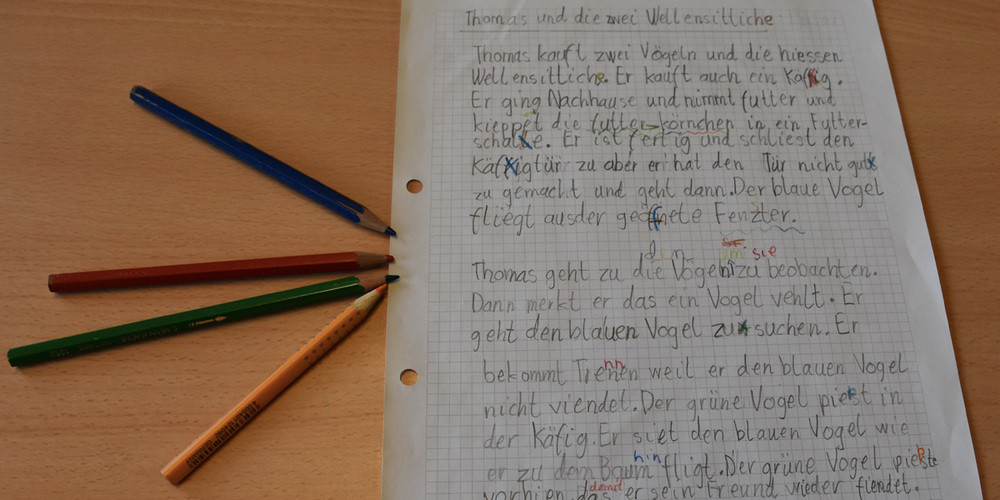 Thomas und die zwei Wellensittliche
Thomas kauft zwei Vögeln und die hiessen
Wellensittliche. Er kauft auch ein Käfig.
Er ging Nachhause und nimmt futter und
kieppet die futter-körnchen in ein Futter-
schalle. Er ist fertig und schliest den
Käfigtür zu aber er hat den Tür nicht gut
zu gemacht und geht dann. Der blaue Vogel
fliegt aus der geöffnete Fenzter.
den um sie
Thomas geht zu die Vögeln zu beobachten.
Dann merkt er das ein Vogel vehlt. Er
geht den blauen Vogel zu suchen. Er
bekommt Trenen weil er den blauen Vogel
nicht viendet. Der grüne Vogel piekst in
der Käfig. Er siet den blauen Vogel wie
er zu dem Baum hin fligt. Der grüne Vogel piekste
vorhien das damit er sein Freund wieder fiendet.